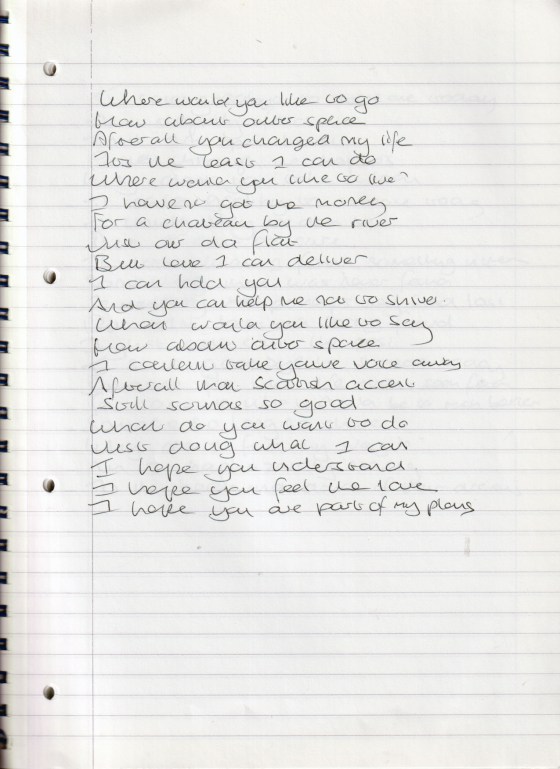 Where would you like to go
How about outer space
Afterall you changed my life
It's the least I can do
Where would you like to live?
I have no got the money
For a chateau by the river
Just our flat
But love I can deliver
I can hold you
And you can help me not to shiver.
What would you like to say
How about outer space
I couldn't take your voice away
Afterall that Scottish accent
Still sounds so good
What do you want to do
Just doing what I can
I hope you understand.
I hope you feel the love.
I hope you are part of my plans